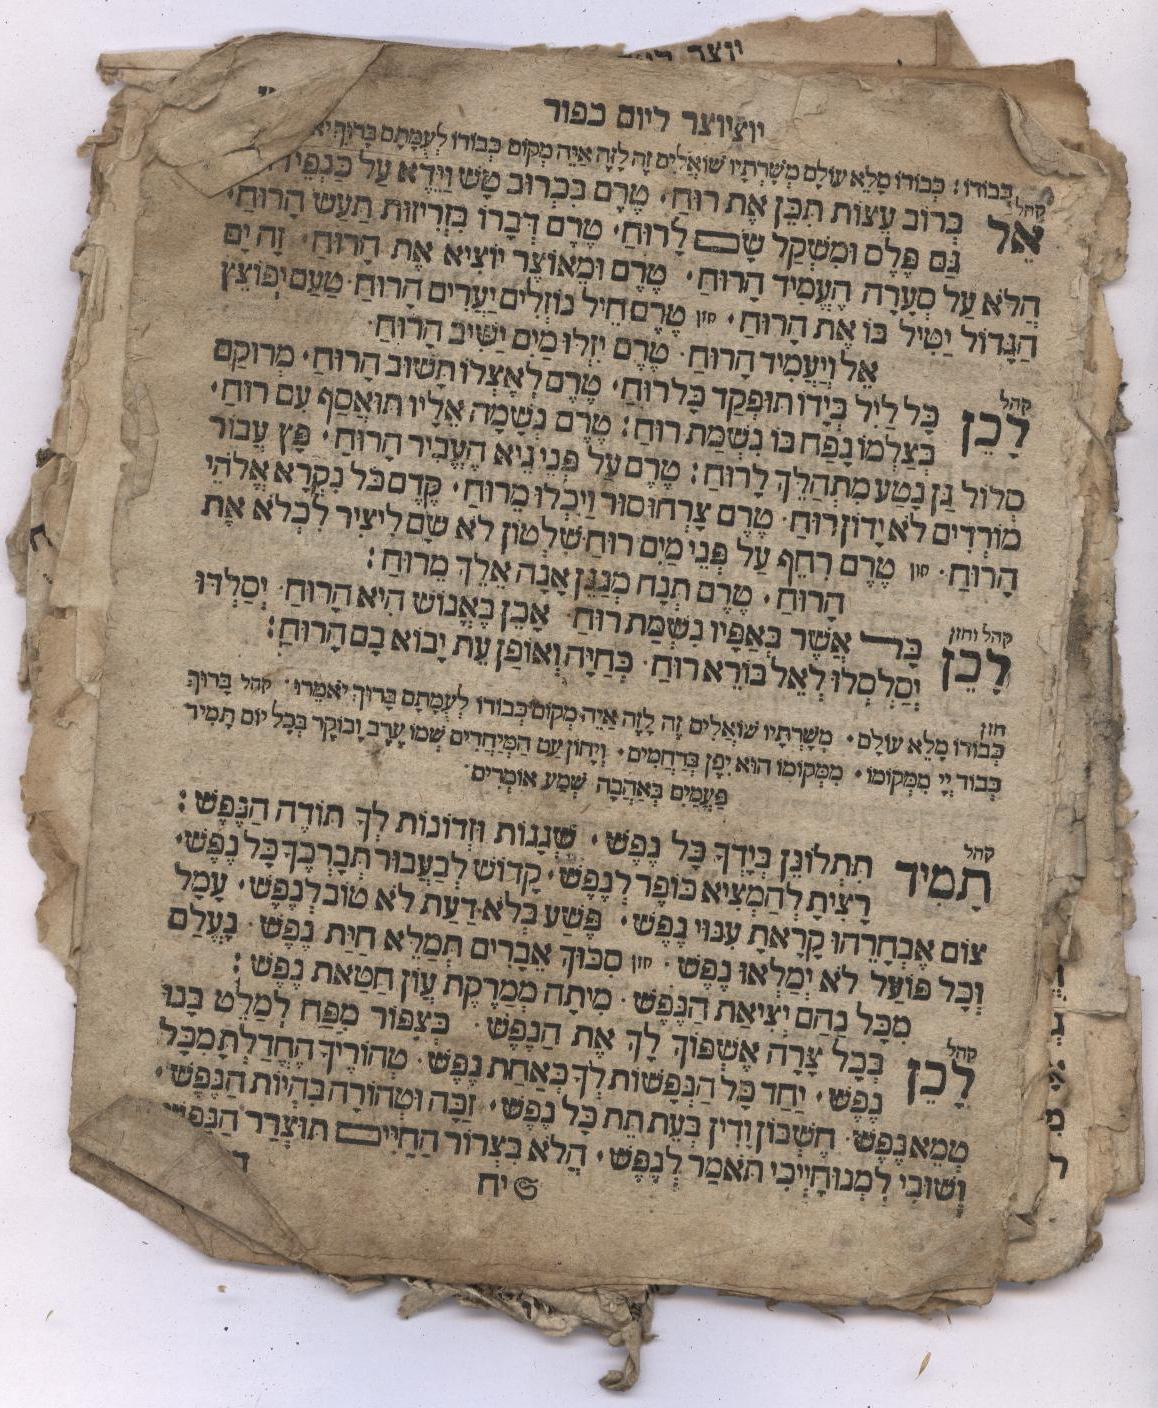 יוצר
יוציוצר ליום כפור
כְּבוֹדוֹ: כְּבוֹדוֹ מָלֵא עוֹלָם מְשָׁרְתָיו שׁוֹאֲלִים זֶה לָזֶה אַיֵּה מְקוֹם כְּבוֹדוֹ לְעֻמָּתָם בָּרוּךְ
קהל
אֵל בְּרוֹב עֵצוֹת תִּכֵּן אֶת רוּחַ· טֶרֶם בִּכְרוּב טָשׂ וַיֵּדֶא עַל כַּנְפֵי
גַּם פֶּלֶס וּמִשְׁקָל שָׂם לָרוּחַ· טֶרֶם דְּבָרוֹ בִּזְרִיזוּת תַּעַשׂ הָרוּחַ·
הֲלֹא עַל סְעָרָה הֶעֱמִיד הָרוּחַ· טֶרֶם וּמֵאוֹצֶר יוֹצִיא אֶת הָרוּחַ· זֶה יָם
הַגָּדוֹל יַטִּיל בּוֹ אֶת הָרוּחַ· חזן טֶרֶם חֵיל נוֹזְלִים יַעֲרִים הָרוּחַ· טַעַם יְפוֹצֵץ
אֵל וְיַעֲמִיד הָרוּחַ· טֶרֶם יִזְּלוּ מַיִם יַשִּׁיב הָרוּחַ·
קהל
לָכֵן כָּל לַיִל בְּיָדוֹ תּוּפְקַד כָּל רוּחַ· טֶרֶם לְאֶצְלוֹ תָּשׁוּב הָרוּחַ· מְרוּקָּם
בְּצַלְמוֹ נָפַח בּוֹ נִשְׁמַת רוּחַ: טֶרֶם נְשָׁמָה אֵלָיו תּוּאֲסַף עִם רוּחַ·
סִלּוּל גַּן נָטַע מִתְהַלֵּךְ לָרוּחַ: טֶרֶם עַל פְּנֵי גֵיא הֶעֱבִיר הָרוּחַ· פָּץ עֲבוּר
מוֹרְדִים לֹא יָדוֹן רוּחַ· טֶרֶם צָרְחוּ סוּר וַיִּכְלוּ מֵרוּחַ· קֶדֶם כֹּל נִקְרָא אֱלֹהֵי
הָרוּחַ· חזן טֶרֶם רִחֵף עַל פְּנֵי מַיִם רוּחַ· שִׁלְטוֹן לֹא שָׂם לִיצִיר לִכְלֹא אֶת
הָרוּחַ· טֶרֶם תְּנָח מְגַנֵּן אָנָה אֵלֵךְ מֵרוּחַ:
קהל וחזן
לָכֵן כָּל אֲשֶׁר בְּאַפָּיו נִשְׁמַת רוּחַ· אָכֵן בֶּאֱנוֹשׁ הִיא הָרוּחַ· יְסַלְּדוּ
וִיסַלְסְלוּ לְאֵל בּוֹרֵא רוּחַ· כְּחַיָּה וְאוֹפַן עֵת יָבוֹא בָם הָרוּחַ:
חזן
כְּבוֹדוֹ מָלֵא עוֹלָם· מְשָׁרְתָיו שׁוֹאֲלִים זֶה לָזֶה אַיֵּה מְקוֹם כְּבוֹדוֹ לְעֻמָּתָם בָּרוּךְ יֹאמֵרוּ· קהל בָּרוּךְ
כְּבוֹד יְיָ מִמְּקוֹמוֹ· מִמְּקוֹמוֹ הוּא יִפֶן בְּרַחֲמִים· וְיָחוֹן עַם הַמְּיַחֲדִים שְׁמוֹ עֶרֶב וָבוֹקֶר בְּכָל יוֹם תָּמִיד
פַּעֲמַיִם בְּאַהֲבָה שְׁמַע אוֹמְרִים·
קהל
תָּמִיד תִּתְלוֹנֵן בְּיָדְךָ כָּל נֶפֶשׁ· שְׁגָגוֹת וּזְדוֹנוֹת לְךָ תּוֹדֶה הַנֶּפֶשׁ:
רָצִיתָ לְהַמְצִיא כּוֹפֶר לְנֶפֶשׁ· קָדוֹשׁ לְבַעֲבוּר תְּבָרֶכְךָ כָּל נֶפֶשׁ·
צוֹם אֶבְחָרֵהוּ קָרָאתָ עִנּוּי נֶפֶשׁ· פֶּשַׁע בְּלֹא דַעַת לֹא טוֹב לְנֶפֶשׁ· עָמָל
וְכָל פּוֹעַל לֹא יְמַלְאוּ נֶפֶשׁ· חזן סִכּוּךְ אֵבָרִים תְּמַלֵּא חַיַּת נֶפֶשׁ· נֶעֱלָם
מִכָּל נַהַם יְצִיאַת הַנֶּפֶשׁ· מִיתָה מְמָרֶקֶת עֲוֹן חַטַּאת נֶפֶשׁ:
קהל
לָכֵן בְּכָל צָרָה אֶשְׁפּוֹךְ לָךְ אֶת הַנֶּפֶשׁ· כְּצִפּוֹר מִפַּח לְמַלֵּט בָּנוּ
נֶפֶשׁ· יַחַד כָּל הַנְּפָשׁוֹת לְךָ כְּאַחַת נֶפֶשׁ· טְהוֹרֶיךָ הֶחֱדַלְתָּ מִכָּל
טְמֵא נֶפֶשׁ· חֶשְׁבּוֹן וָדִין בְּעֵת תֵּת כָּל נֶפֶשׁ· זַכָּה וּטְהוֹרָה בִּהְיוֹת הַנֶּפֶשׁ·
וְשׁוּבִי לִמְנוּחָיְיכִי תֹּאמַר לְנֶפֶשׁ· הֲלֹא בִּצְרוֹר הַחַיִּים תּוּצְרַר הַנֶּפֶשׁ
יח